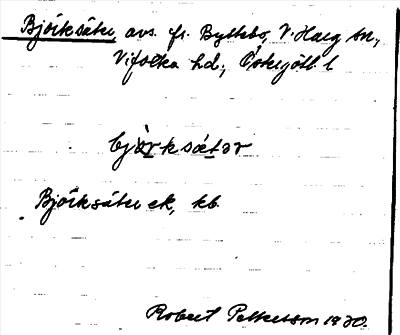 Björksäter, avs. fr. Byttebo, V. Harg sn,
Vifolka hd., Östergötl. l
bjö̀rksǽtər
Björksäter ek, kb.
Robert Pettersson 1930.